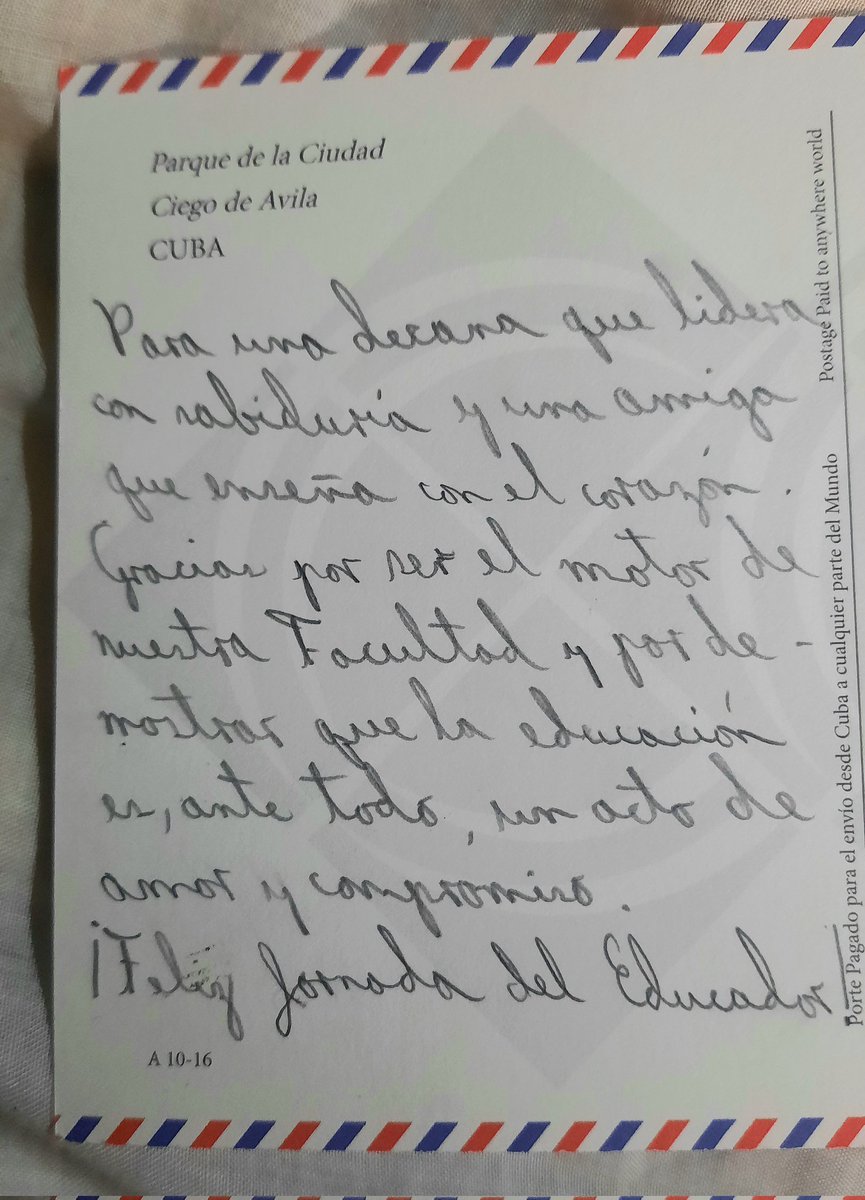 Parque de la Ciudad
Ciego de Avila
CUBA
Para una decana que lidera
con sabiduría y una amiga
que enseña con el corazón.
Gracias por ser el motor de
nuestra Facultad y por de-
mostrar que la educación
es, ante todo, un acto de
amor y compromiso.
¡Feliz Jornada del Educador!
A 10-16
Porte Pagado para el envío desde Cuba a cualquier parte del Mundo Postage Paid to anywhere world